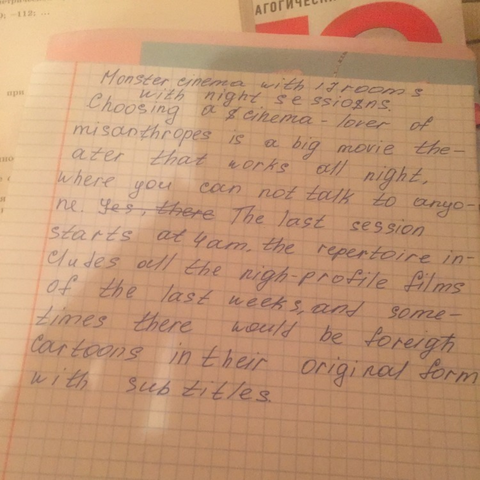 АГОГИЧЕСК
; -112; ...
при
Monster cinema with 17 rooms
with night sessions.
Choosing a cinema-lover of
misanthropes is a big movie the-
ater that works all night,
where you can not talk to anyo-
ne. Yes, there The last session
starts at 4am. the repertoire in-
cludes all the high-profile films
of the last weeks, and some-
times there would be foreigh
cartoons in their original form
with subtitles